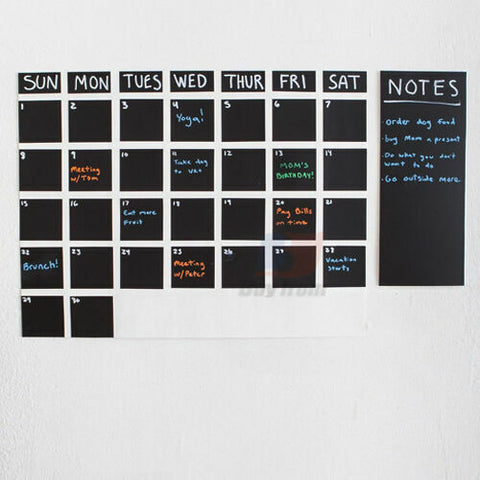 SUN MON TUES WED THUR FRI SAT
1 2 3 4 5 6 7
Yoga!
8 9 10 11 12 13 14
Meeting
w/Tom
Take dog
to vet
MOM'S
BIRTHDAY!
15 16 17 18 19 20 21
Eat more
fruit
Pay Bills
on time
22 23 24 25 26 27 28
Brunch!
Meeting
w/Peter
Vacation
starts
29 30
NOTES
-order dog food
-buy Mom a present
-Do what you don't
want to do
-Go outside more